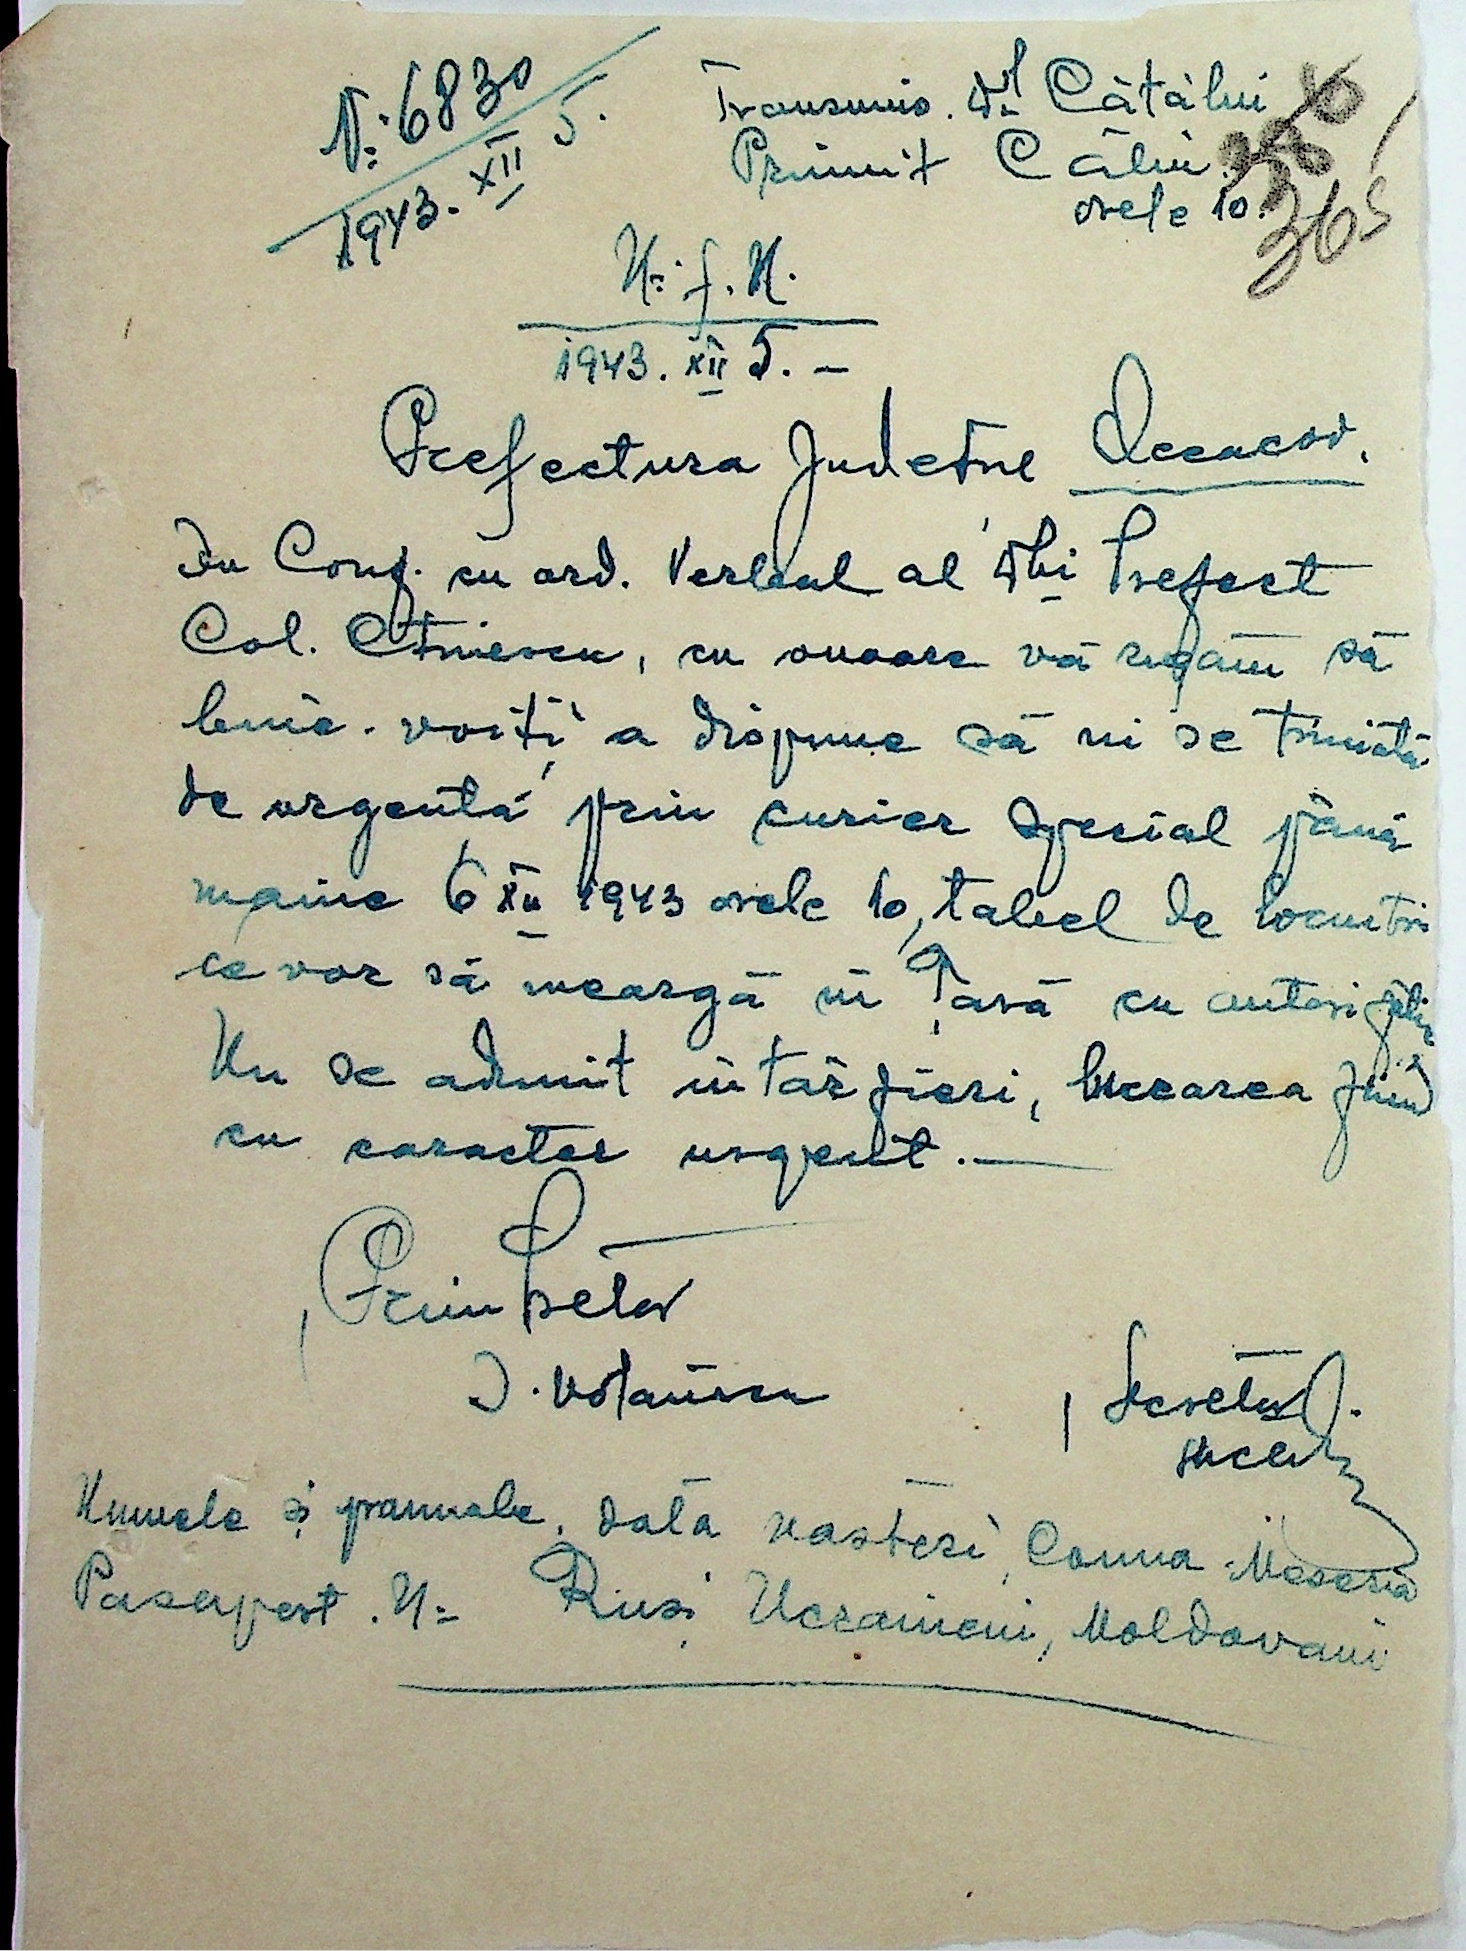 N: 6830
1943. XII 5.
Transmis. Dl Cătălui
Primit Călin
orele 10.
365
N: f. N.
1943. XII 5. –
Prefectura Județne
In Conf. cu ord. Verbal al Dlui Prefect
Col. cu onoare vă rugăm să
binie. voiți a dispune să ni se trimiată
de urgentă prin curier special până
maine 6 XII 1943 orele 10, tabel de locuitori
ce vor să meargă in Țară cu
Nu se admit intârzieri, lucrarea fiind
cu caracter urgent. —
Prim Pretor
I.
Secretar
Numele și pronumele, data nasteri, Comuna Meseria
Pasaport. N: Ruși Ucraineni, Moldovani